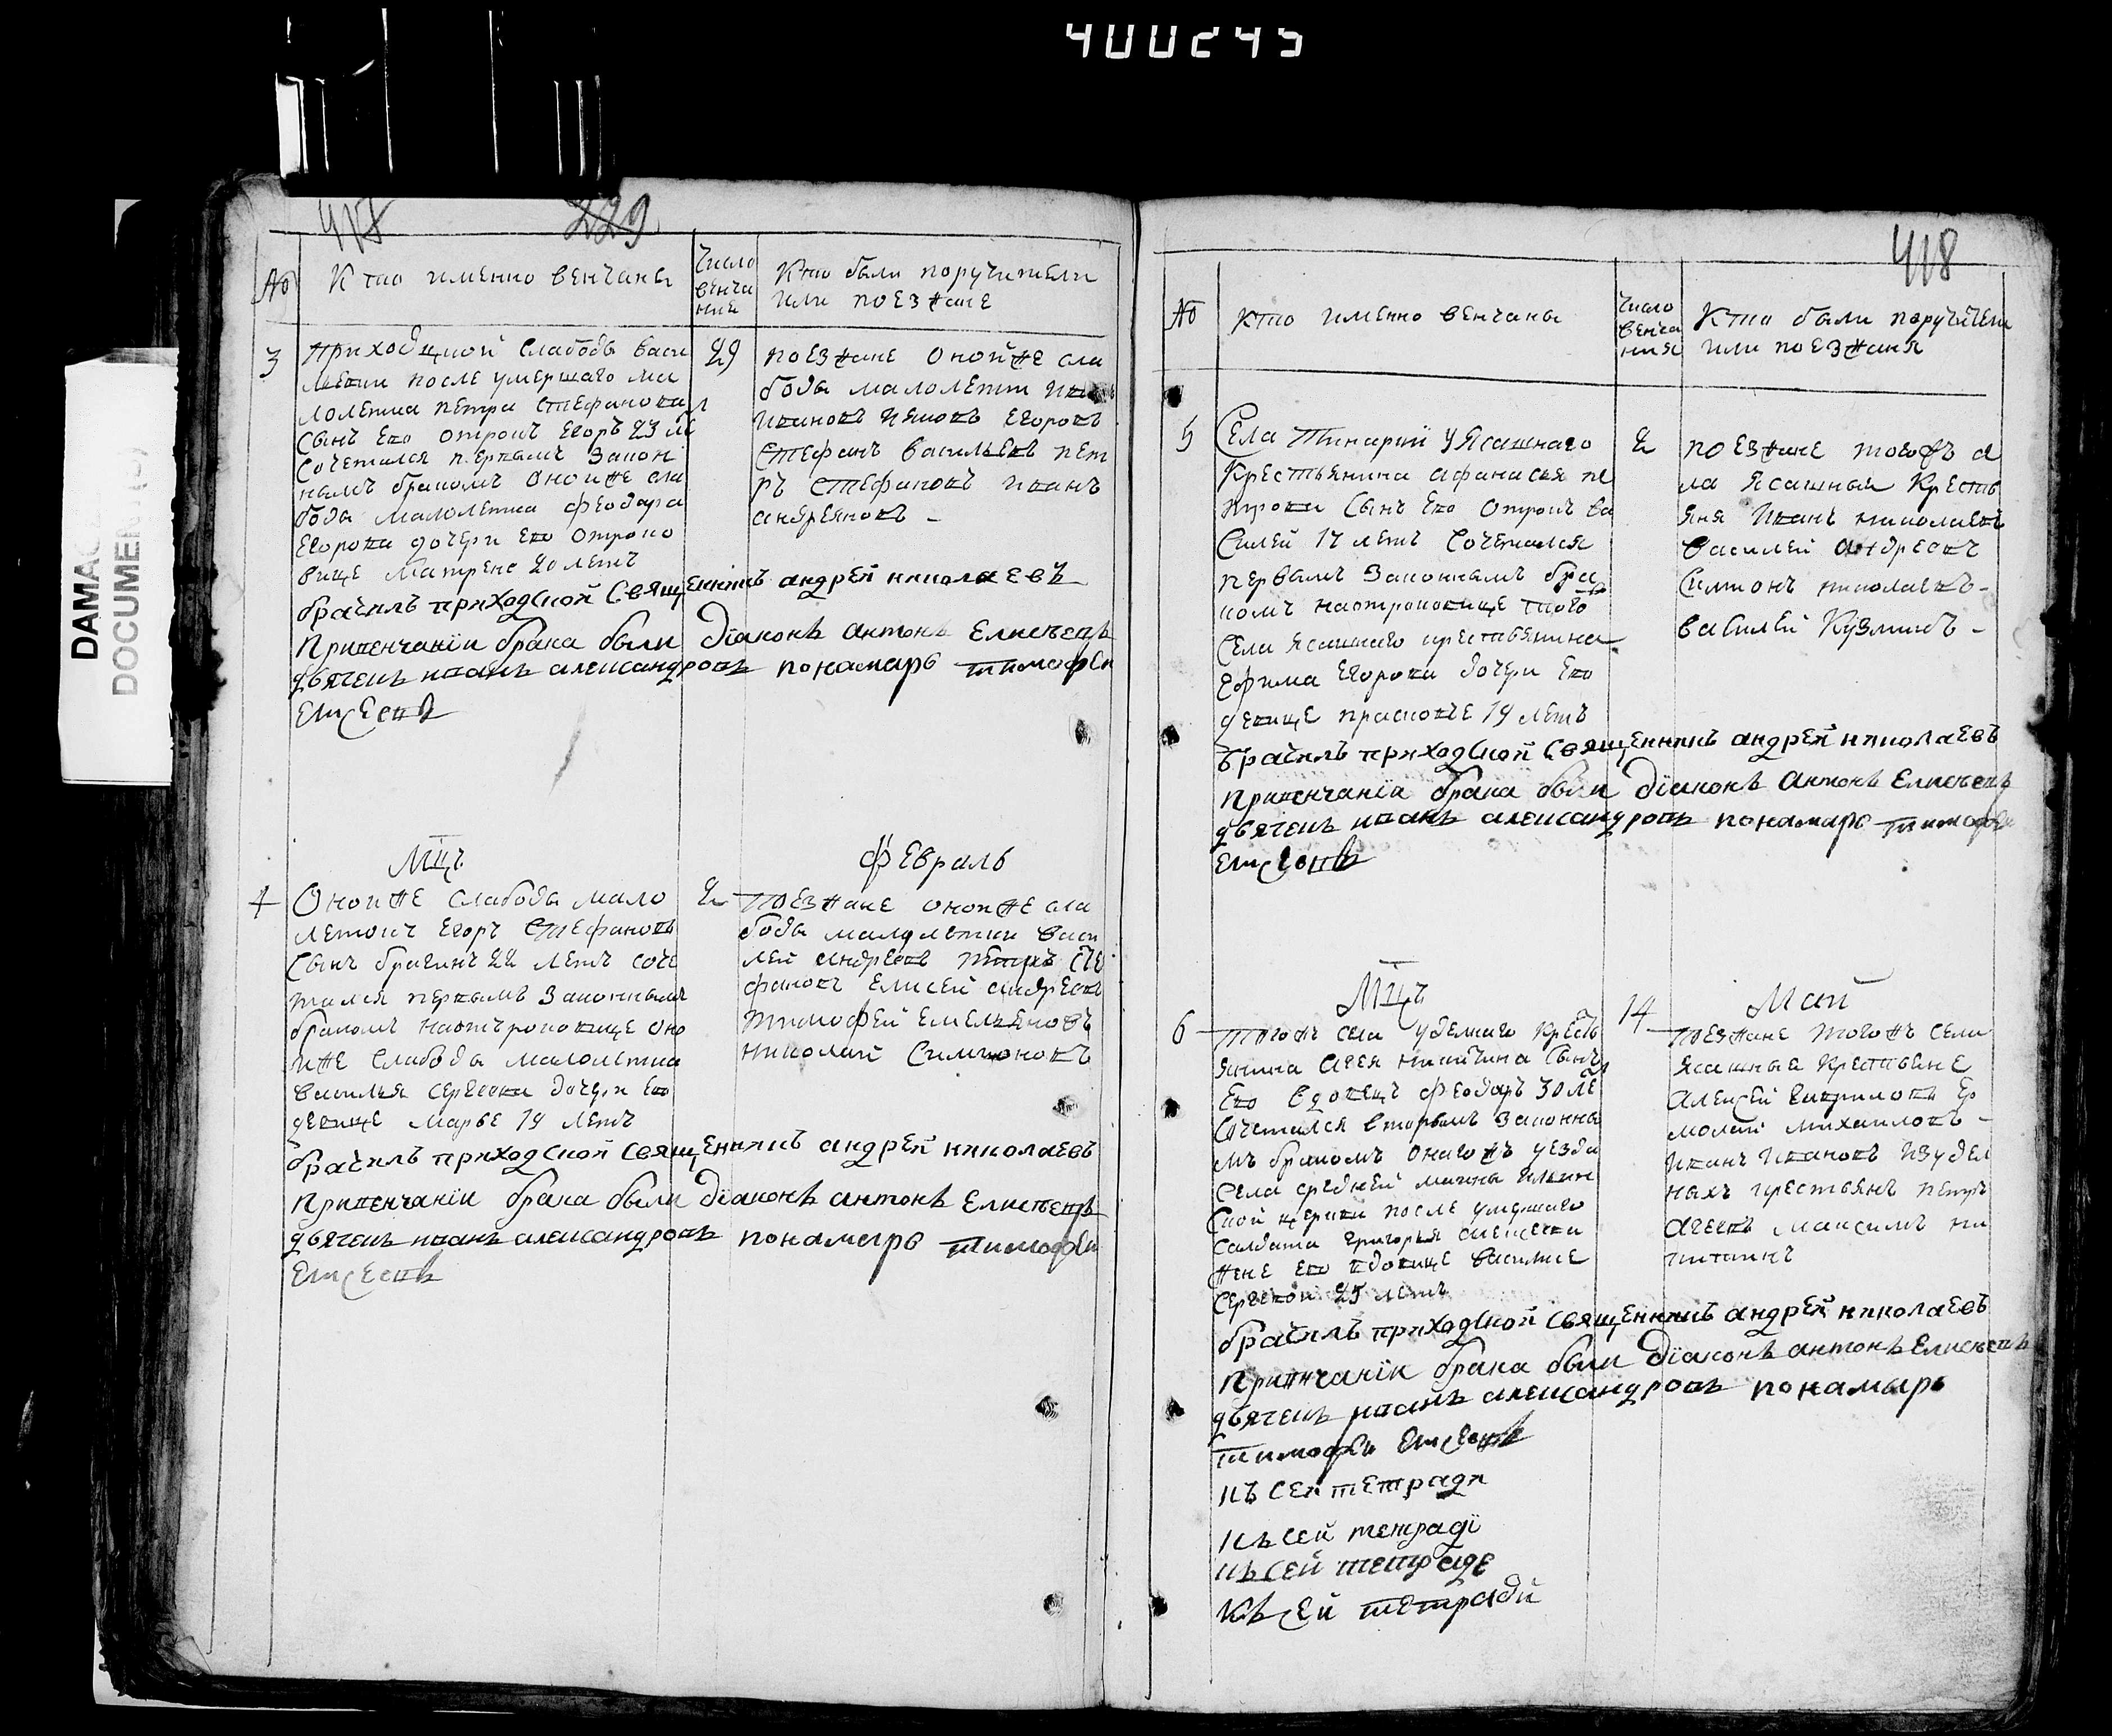 400245
DAMAG
DOCUMEN
417 229
№
Кто именно венчаны
Число
венча
ние
Кто были поручители
или поезжане
3
Приходцкой слабоды васи
после умершаго ма
лолетка петра стефанова
сынъ ево отрокъ Егоръ 23 ле
сочетался первымъ закон
нымъ бракомъ онойже сла
боды малолетка феодора
Егорова дочери ево отроко
вице матрене 20 летъ
29
поезжане онойже сла
боды малолетки
Ивановъ Егоровъ
стефанъ васильевъ пет
ръ стефановъ иванъ
андреяновъ
брачилъ приходской священникъ андрей николаевъ
Привенчанiи брака были дiаконъ антонъ Елисеевъ
дьячекъ иванъ александровъ понамарь тимофей
Елисеевъ
Мцъ
Февраль
4
Онойже слабоды мало
летокъ Егоръ стефановъ
сынъ брагинъ 22 летъ соче
тался первымъ законнымъ
бракомъ наотъроковице оно
йже слабоды малолетка
василья сергеева дочери ево
девице марье 19 летъ
2
поезжане онойже сла
боды малолетки васи
лей андреевъ петръ сте
фановъ Елисей андреевъ
тимофей емельяновъ
николай симионовъ
брачилъ приходской священникъ андрей николаевъ
Привенчанiи брака были дiаконъ антонъ Елисеевъ
дьячекъ иванъ александровъ понамарь тимофей
Елисеевъ
418
№
Кто именно венчаны
Число
венча
ния
Кто были поручители
или поезжаня
5
Села ясашнаго
крестьянина афанасья пе
трова сынъ ево отрокъ ва
силей 17 летъ сочетался
первымъ законнымъ бра
комъ наотроковице тогож
села ясашнаго крестьянина
Ефима Егорова дочери ево
девице прасковье 19 летъ
2
поезжане тогожъ се
ла ясашныя кресть
яня Иванъ николаевъ
василей андреевъ
симионъ николаевъ
василей кузминъ
брачилъ приходской священникъ андрей николаевъ
Привенчанiи брака были дiаконъ антонъ Елисеевъ
дьячекъ иванъ александровъ понамарь тимофей
Елисеевъ
Мцъ
Май
6
тогожъ села уделнаго кресть
янина агея никитина сынъ
ево вдовецъ феодаръ 30 ле
сочетался вторымъ законны
мъ бракомъ онагожъ уезда
села средней
ской церкви после умершаго
салдата григорья алексеева
жене ево вдовице василисе
сергевой 25 летъ
14
поезжане тогожъ села
ясашныя крестьяне
алексей гавриловъ Ер
молай михаиловъ
иванъ ивановъ изудел
ныхъ крестьянъ петръ
агеевъ максимъ ни
китинъ
брачилъ приходской священникъ андрей николаевъ
Привенчанiи брака были дiаконъ антонъ Елисеевъ
дьячекъ иванъ александровъ понамарь
тимофей Елисеевъ
къ сей тетради
къ сей тетрадi
къ сей тетраде
къ сей тетради